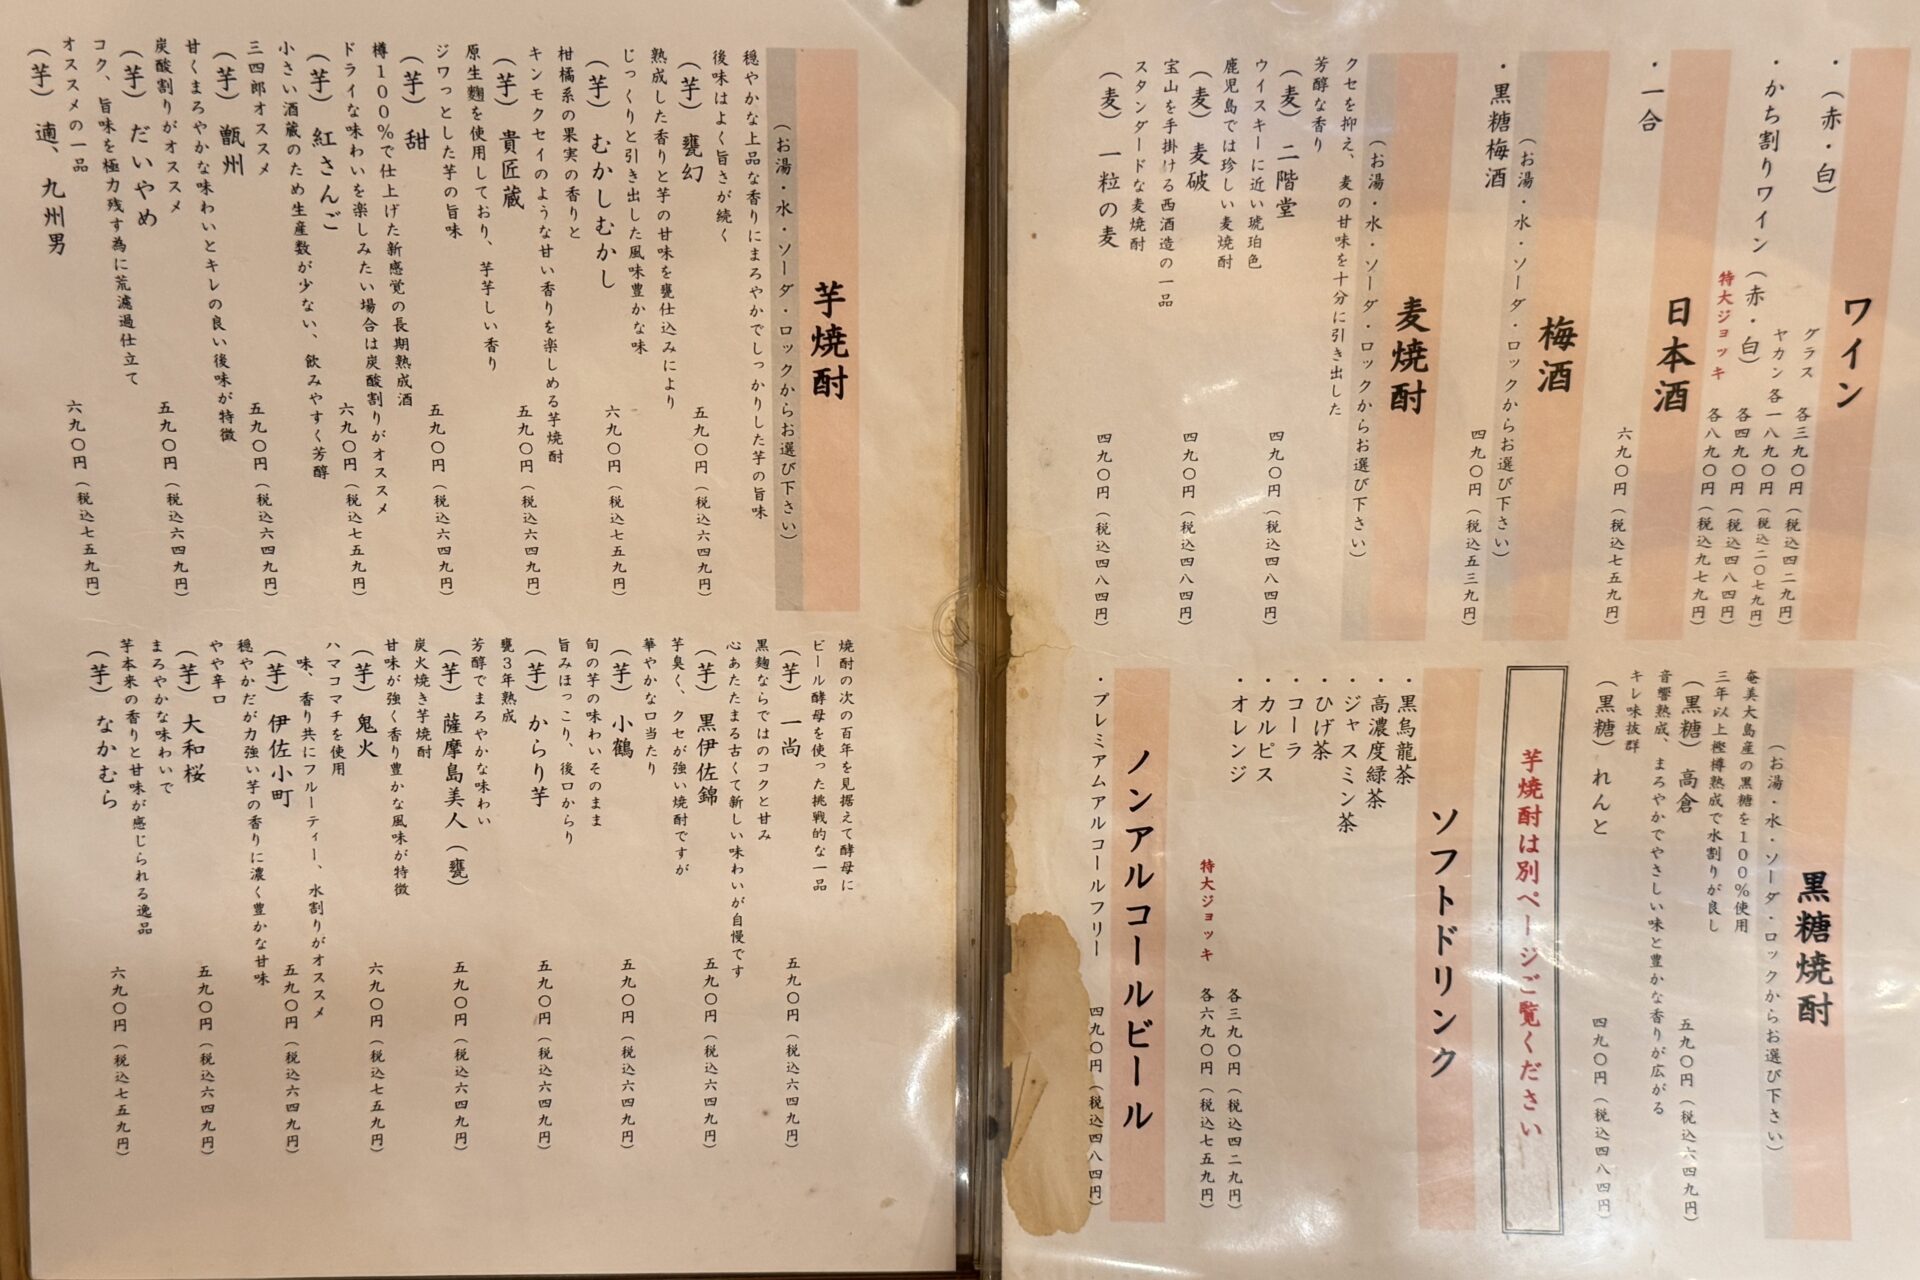 ワイン
・（赤・白）　グラス　各三九〇円（税込四二九円）
ヤカン　各一八九〇円（税込二〇七九円）
・かち割りワイン（赤・白）　各四九〇円（税込四八四円）
特大ジョッキ　各八九〇円（税込九七九円）
日本酒
・一合　六九〇円（税込七五九円）
梅酒
（お湯・水・ソーダ・ロックからお選び下さい）
・黒糖梅酒　四九〇円（税込五三九円）
麦焼酎
（お湯・水・ソーダ・ロックからお選び下さい）
クセを抑え、麦の甘味を十分に引き出した
芳醇な香り
（麦）二階堂　四九〇円（税込四八四円）
ウイスキーに近い琥珀色
鹿児島では珍しい麦焼酎
（麦）麦破　四九〇円（税込四八四円）
宝山を手掛ける西酒造の一品
スタンダードな麦焼酎
（麦）一粒の麦　四九〇円（税込四八四円）
黒糖焼酎
（お湯・水・ソーダ・ロックからお選び下さい）
奄美大島産の黒糖を１００％使用
三年以上樫樽熟成で水割りが良し
（黒糖）高倉　五九〇円（税込六四九円）
音響熟成、まろやかでやさしい味と豊かな香りが広がる
キレ味抜群
（黒糖）れんと　四九〇円（税込四八四円）
芋焼酎は別ページご覧ください
ソフトドリンク
・黒烏龍茶
・高濃度緑茶
・ジャスミン茶
・ひげ茶
・コーラ
・カルピス
・オレンジ
各三九〇円（税込四二九円）
特大ジョッキ　各六九〇円（税込七五九円）
ノンアルコールビール
・プレミアムアルコールフリー　四九〇円（税込四八四円）
芋焼酎
（お湯・水・ソーダ・ロックからお選び下さい）
穏やかな上品な香りにまろやかでしっかりした芋の旨味
後味はよく旨さが続く
（芋）甕幻　五九〇円（税込六四九円）
熟成した香りと芋の甘味を甕仕込みにより
じっくりと引き出した風味豊かな味
（芋）むかしむかし　六九〇円（税込七五九円）
柑橘系の果実の香りと
キンモクセイのような甘い香りを楽しめる芋焼酎
（芋）貴匠蔵　五九〇円（税込六四九円）
原生麹を使用しており、芋芋しい香り
ジワっとした芋の旨味
（芋）甜　五九〇円（税込六四九円）
樽１００％で仕上げた新感覚の長期熟成酒
ドライな味わいを楽しみたい場合は炭酸割りがオススメ
（芋）紅さんご　六九〇円（税込七五九円）
小さい酒蔵のため生産数が少ない、飲みやすく芳醇
三四郎オススメ
（芋）甑州　五九〇円（税込六四九円）
甘くまろやかな味わいとキレの良い後味が特徴
炭酸割りがオススメ
（芋）だいやめ　五九〇円（税込六四九円）
コク、旨味を極力残す為に荒濾過仕立て
オススメの一品
（芋）適、九州男　六九〇円（税込七五九円）
焼酎の次の百年を見据えて酵母に
ビール酵母を使った挑戦的な一品
（芋）一尚　五九〇円（税込六四九円）
黒麹ならではのコクと甘み
心あたたまる古くて新しい味わいが自慢です
（芋）黒伊佐錦　五九〇円（税込六四九円）
芋臭く、クセが強い焼酎ですが
華やかな口当たり
（芋）小鶴　五九〇円（税込六四九円）
旬の芋の味わいそのまま
旨みほっこり、後口からり
（芋）からり芋　五九〇円（税込六四九円）
甕３年熟成
芳醇でまろやかな味わい
（芋）薩摩島美人（甕）　五九〇円（税込六四九円）
炭火焼き芋焼酎
甘味が強く香り豊かな風味が特徴
（芋）鬼火　六九〇円（税込七五九円）
ハマコマチを使用
味、香り共にフルーティー、水割りがオススメ
（芋）伊佐小町　五九〇円（税込六四九円）
穏やかだが力強い芋の香りに濃く豊かな甘味
やや辛口
（芋）大和桜　五九〇円（税込六四九円）
まろやかな味わいで
芋本来の香りと甘味が感じられる逸品
（芋）なかむら　六九〇円（税込七五九円）